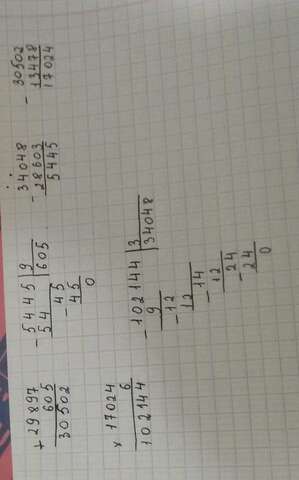 + 29897
605
30502
- 5445 | 9
54 | 605
- 45
45
0
- 34048
28603
5445
- 30502
13478
17024
× 17024
6
102144
- 102144 | 3
9 | 34048
- 12
12
14
- 12
- 24
24
0